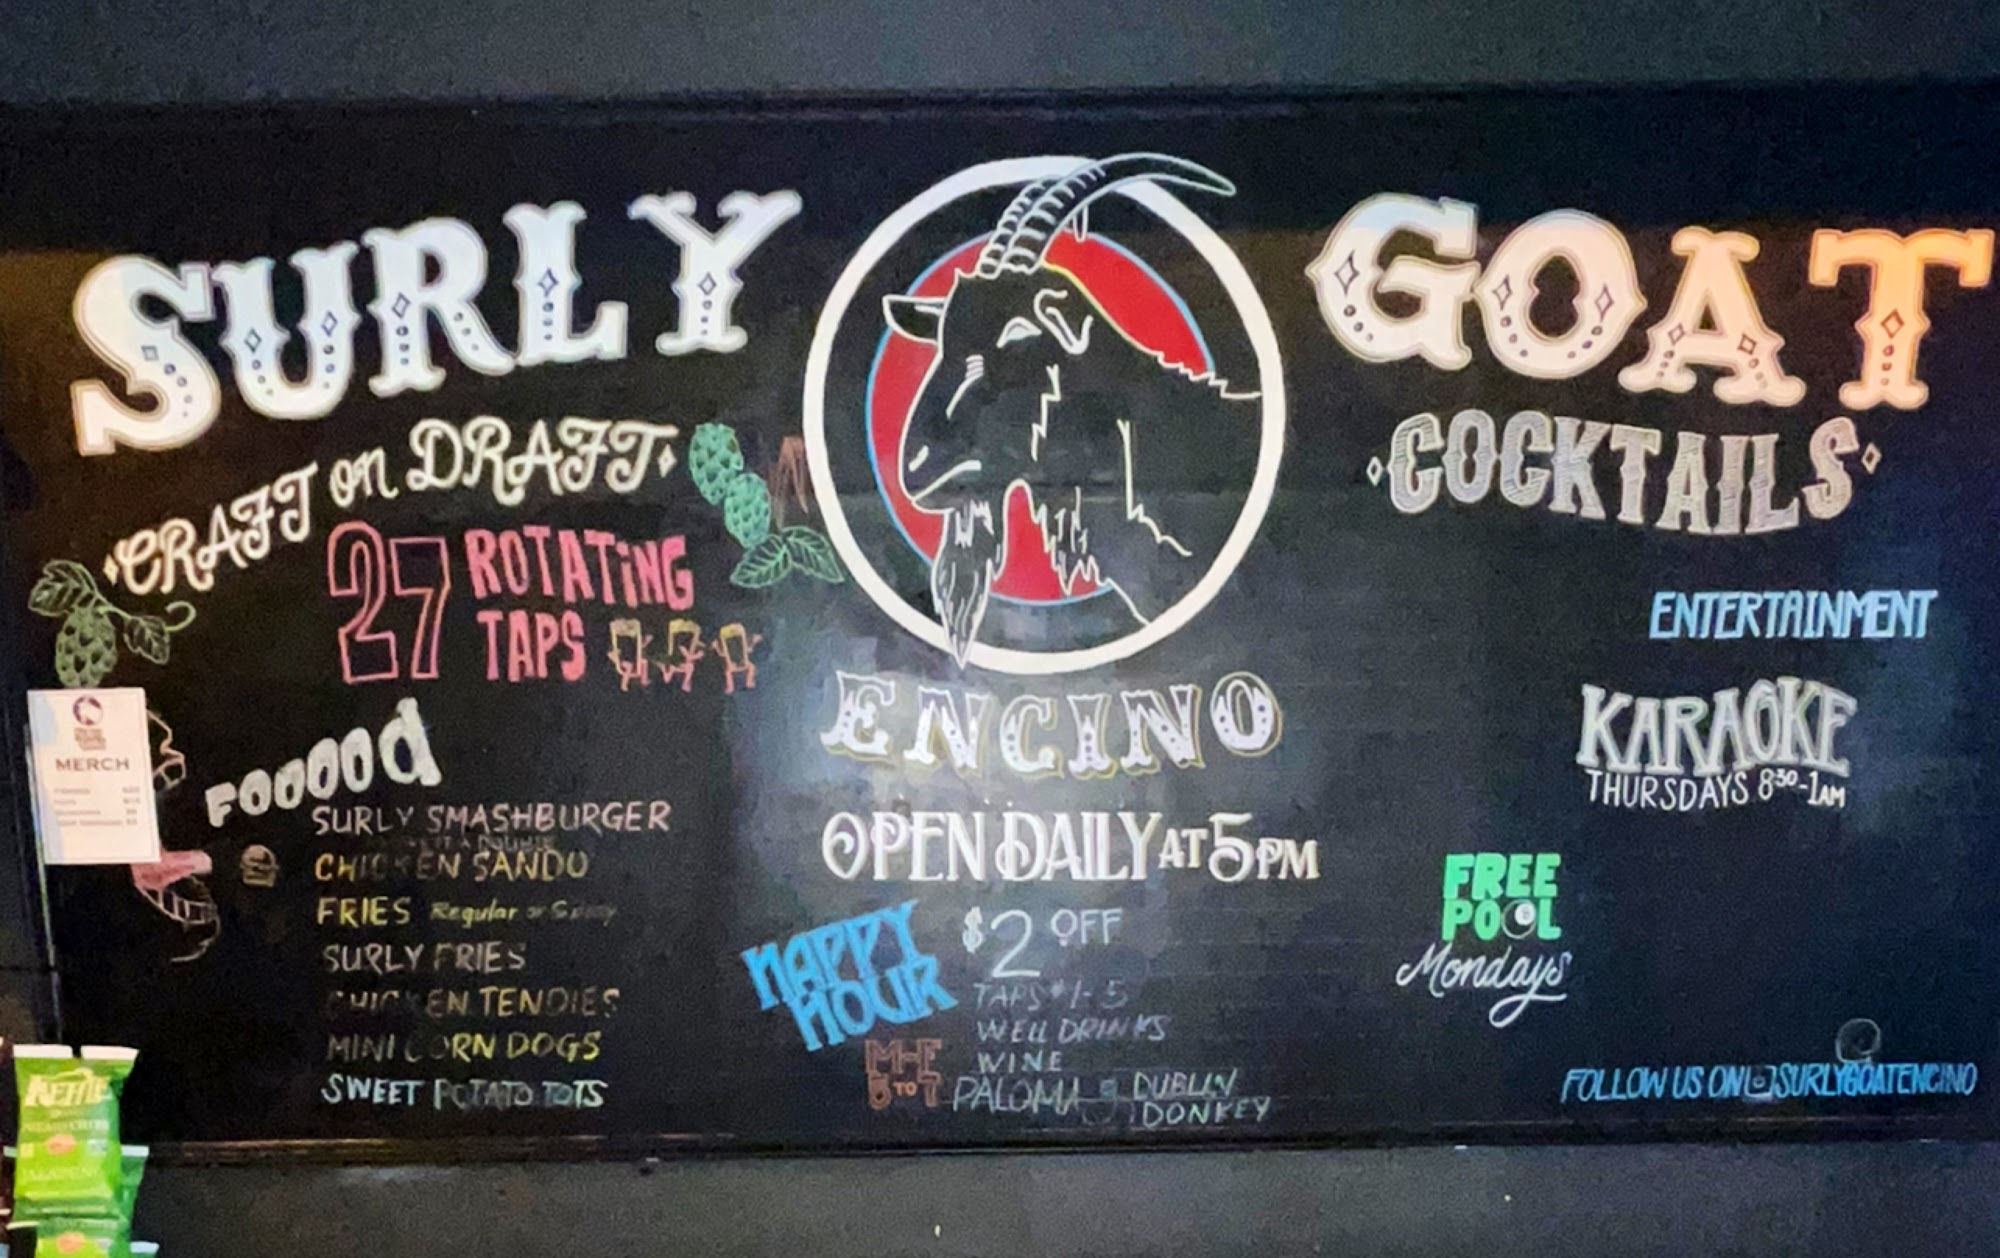 SURLY GOAT
CRAFT on DRAFT
27 ROTATING
TAPS
COCKTAILS
ENCINO
OPEN DAILY AT 5PM
MERCH
FOOOOd
SURLY SMASHBURGER
CHICKEN SANDO
FRIES Regular or Spicy
SURLY FRIES
CHICKEN TENDIES
MINI CORN DOGS
SWEET POTATO TOTS
HAPPY
HOUR
M-F
5 TO 7
$2 OFF
TAPS #1-5
WELL DRINKS
WINE
PALOMA
DUBLIN
DONKEY
ENTERTAINMENT
KARAOKE
THURSDAYS 8:30-1AM
FREE
POOL
Mondays
FOLLOW US ON SURLYGOATENCINO
KETTLE
JALAPEÑO